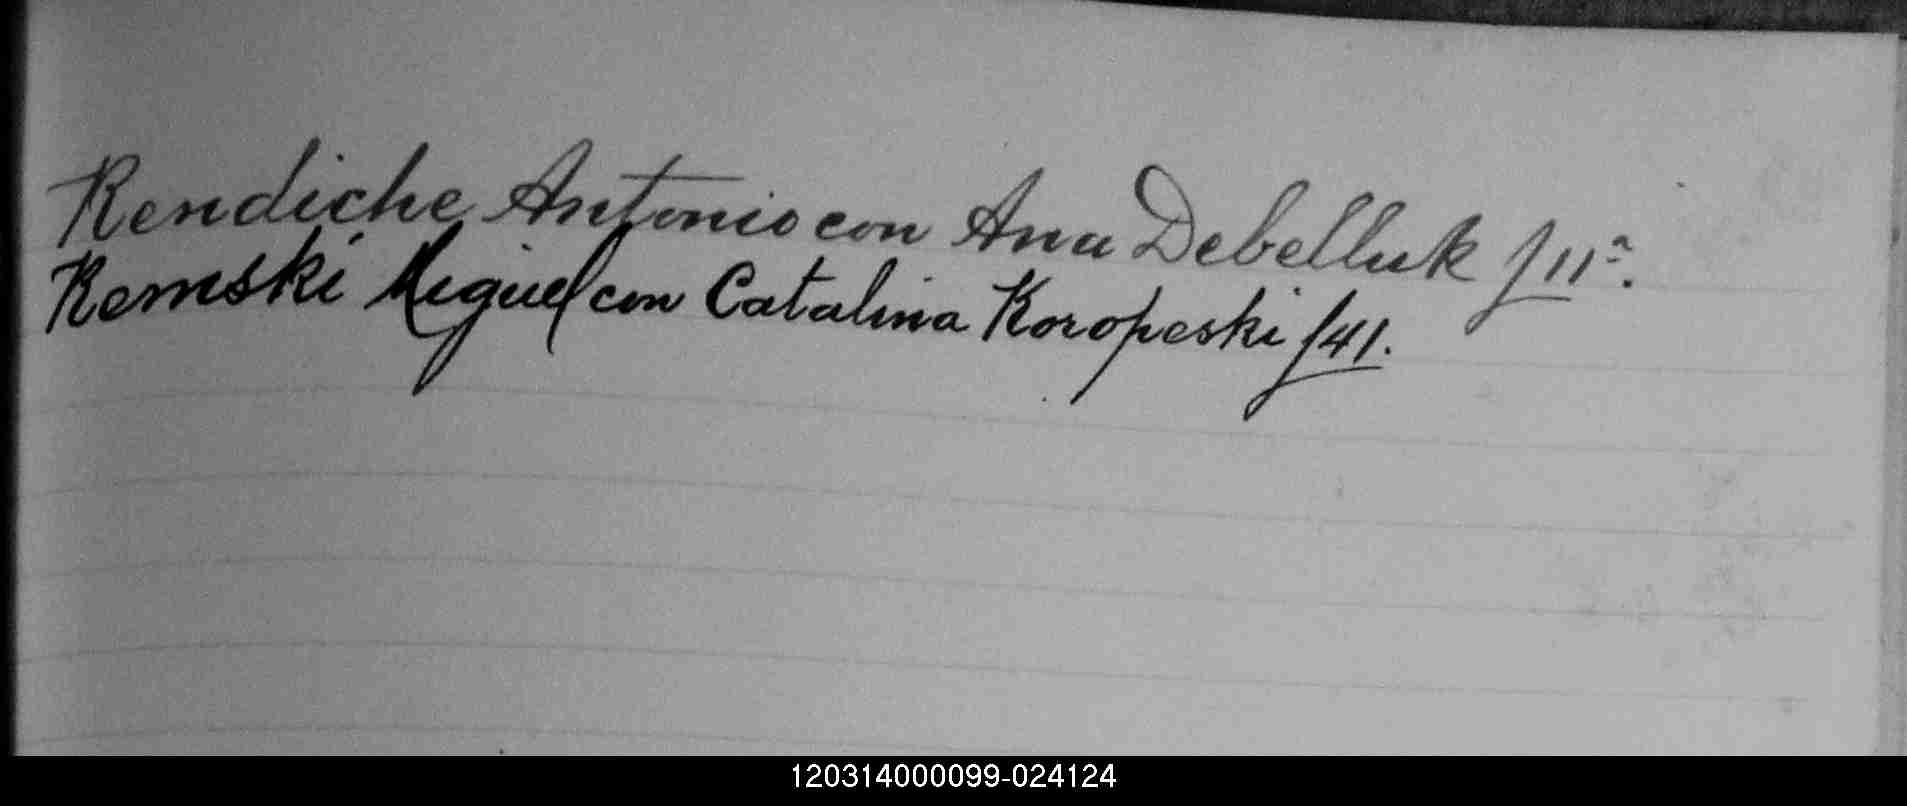 Rendiche Antonio con Ana Debelluk f 11ª.
Remski Miguel con Catalina Koropeski f 41.
120314000099-024124